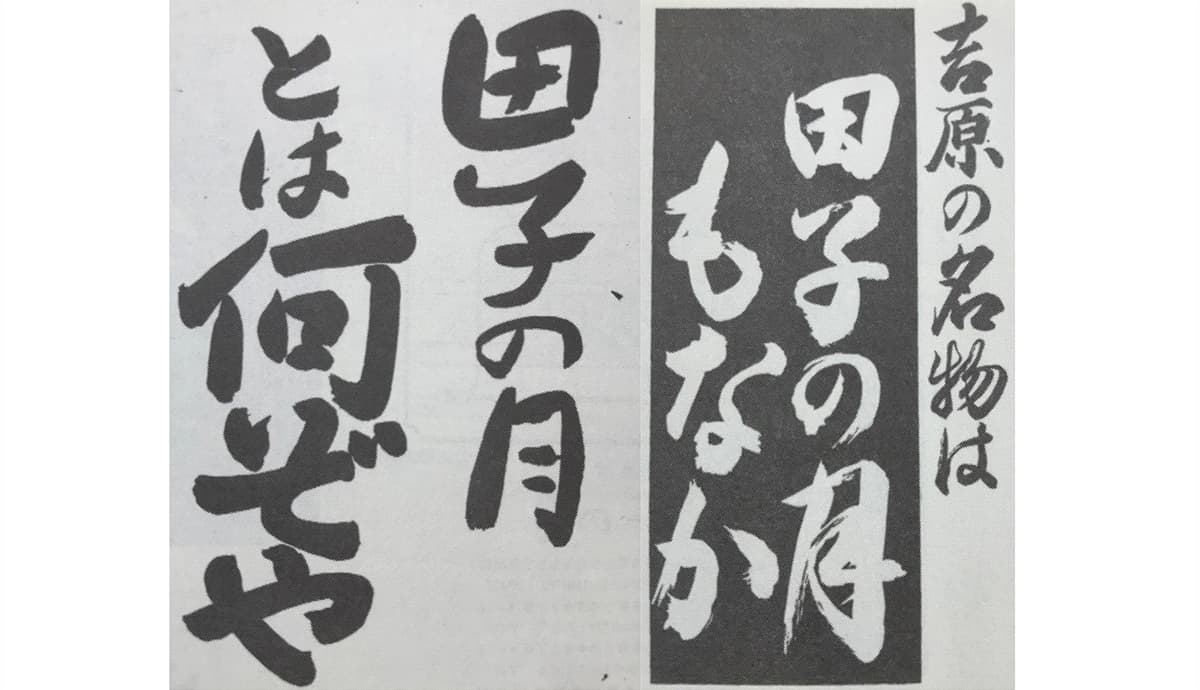 吉原の名物は
田子の月
もなか
田子の月
とは何ぞや